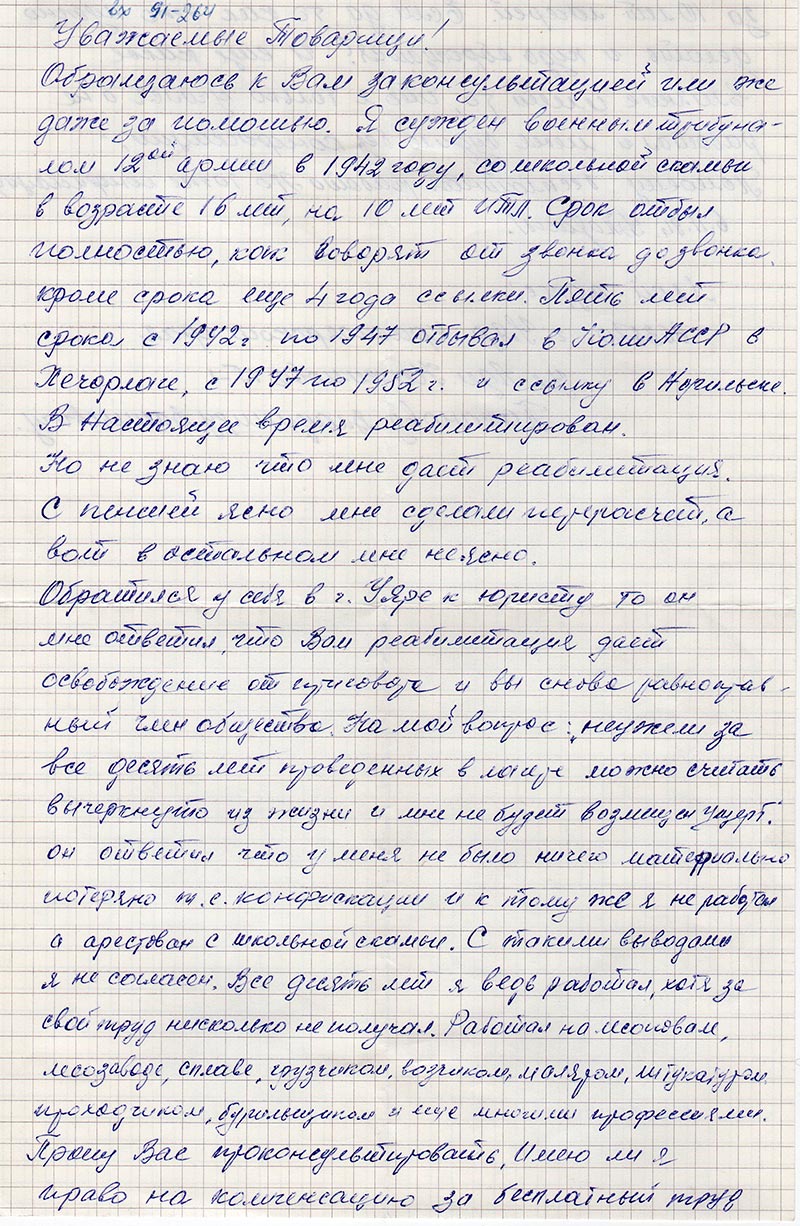 вх 91-264
Уважаемые Товарищи!
Обращаюсь к Вам за консультацией или же
даже за помощью. Я сужден военным трибуна-
лом 12ой армии в 1942 году, со школьной скамьи
в возрасте 16 лет, на 10 лет ИТЛ. Срок отбыл
полностью, как говорят от звонка до звонка.
кроме срока еще 4 года ссылки. Пять лет
срока с 1942г по 1947 отбывал в Коми АССР в
Печорлаге, с 1947 по 1952 г. и ссылку в Норильске.
В Настоящее время реабилитирован.
Но не знаю что мне даст реабилитация.
С пенсией ясно мне сделали перерасчет, а
вот в остальном мне не ясно.
Обратился у себя в г. Уяре к юристу то он
мне ответил, что Вам реабилитация даст
освобождение от приговора и вы снова равноправ-
ный член общества. На мой вопрос: „неужели за
все десять лет проведенных в лагере можно считать
вычеркнуто из жизни и мне не будет возмещен ущерб."
он ответил что у меня не было ничего материально
потеряно т. е. конфискации и к тому же я не работал
а арестован с школьной скамьи. С такими выводами
я не согласен. Все десять лет я ведь работал, хотя за
свой труд нисколько не получал. Работал на лесоповале,
лесозаводе, сплаве, грузчиком, возчиком, маляром, штукатуром
проходчиком, бурильщиком и еще многими профессиями.
Прошу Вас проконсультировать, Имею ли я
право на компенсацию за бесплатный труд